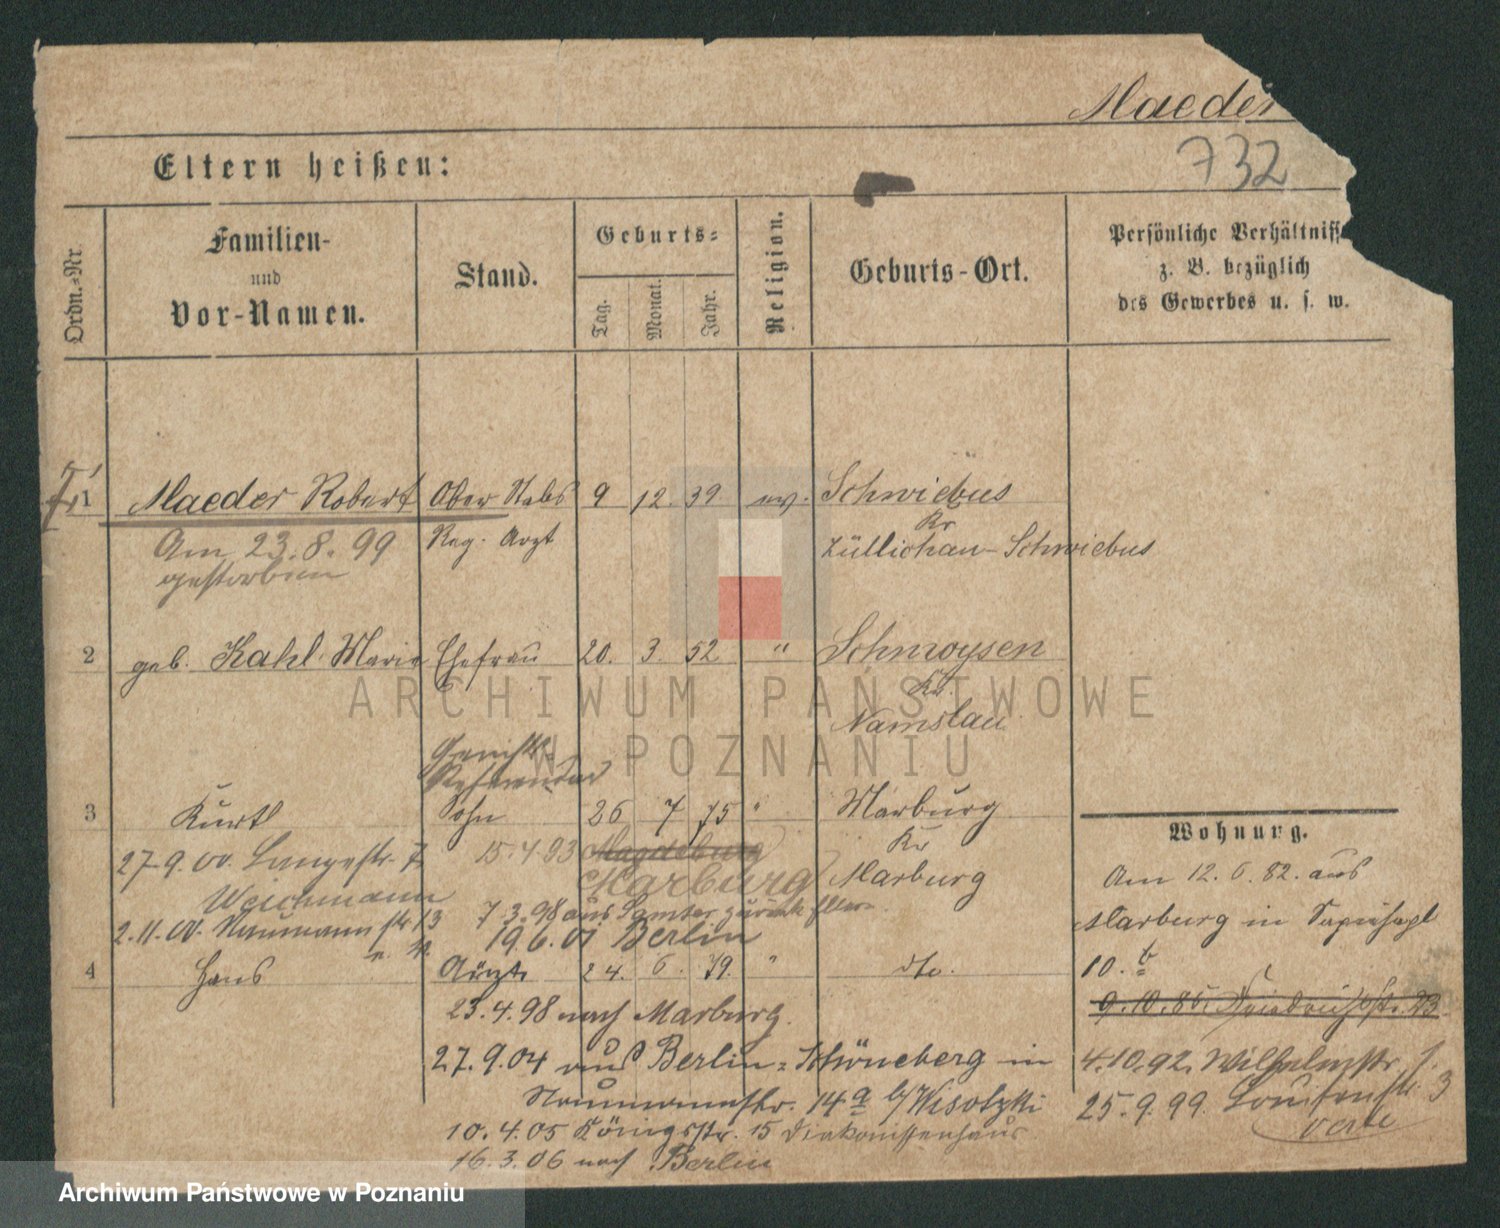 Maeder
732
Eltern heißen:
Ordn.-Nr.
Familien-
und
Vor-Namen.
Stand.
Geburts-
Tag.
Monat.
Jahr.
Religion.
Geburts-Ort.
Persönliche Verhältniss
z. B. bezüglich
des Gewerbes u. s. w.
1 Maeder Robert Ober Stabs 9 12. 39 ev. Schwiebus
Reg. Arzt
Kr
Züllichau-Schwiebus
Am 23.8.99
gestorben
2 geb. Kahl Marie Ehefrau 20. 3. 52 " Schmoysen
Kr.
Namslau
Gerichts-
Referendar
3 Kurt Sohn 26 7 75 " Marburg
Kr
Marburg
27.9.00. Langestr. 7
Weichmann
15.4.93 Magdeburg
Marburg
7.3.98 aus Samter zurück
2.11.00. Naumannstr. 13
19.6.01 Berlin
4 Hans Arzt 24. 6. 79. " dto.
23.4.98 nach Marburg.
27.9.04 aus Berlin-Schöneberg in
Naumannstr. 14a b/Wisotzki
10.4.05 Königsstr. 15 Diakonissenhaus
16.3.06 nach Berlin
Wohnung.
Am 12. 6. 82. aus
Marburg in
10. b
9.10.85. Friedrichstr. 23
4.10.92. Wilhelmstr. 1.
25.9.99. Louisenstr. 3
verte
ARCHIWUM PAŃSTWOWE
W POZNANIU
Archiwum Państwowe w Poznaniu